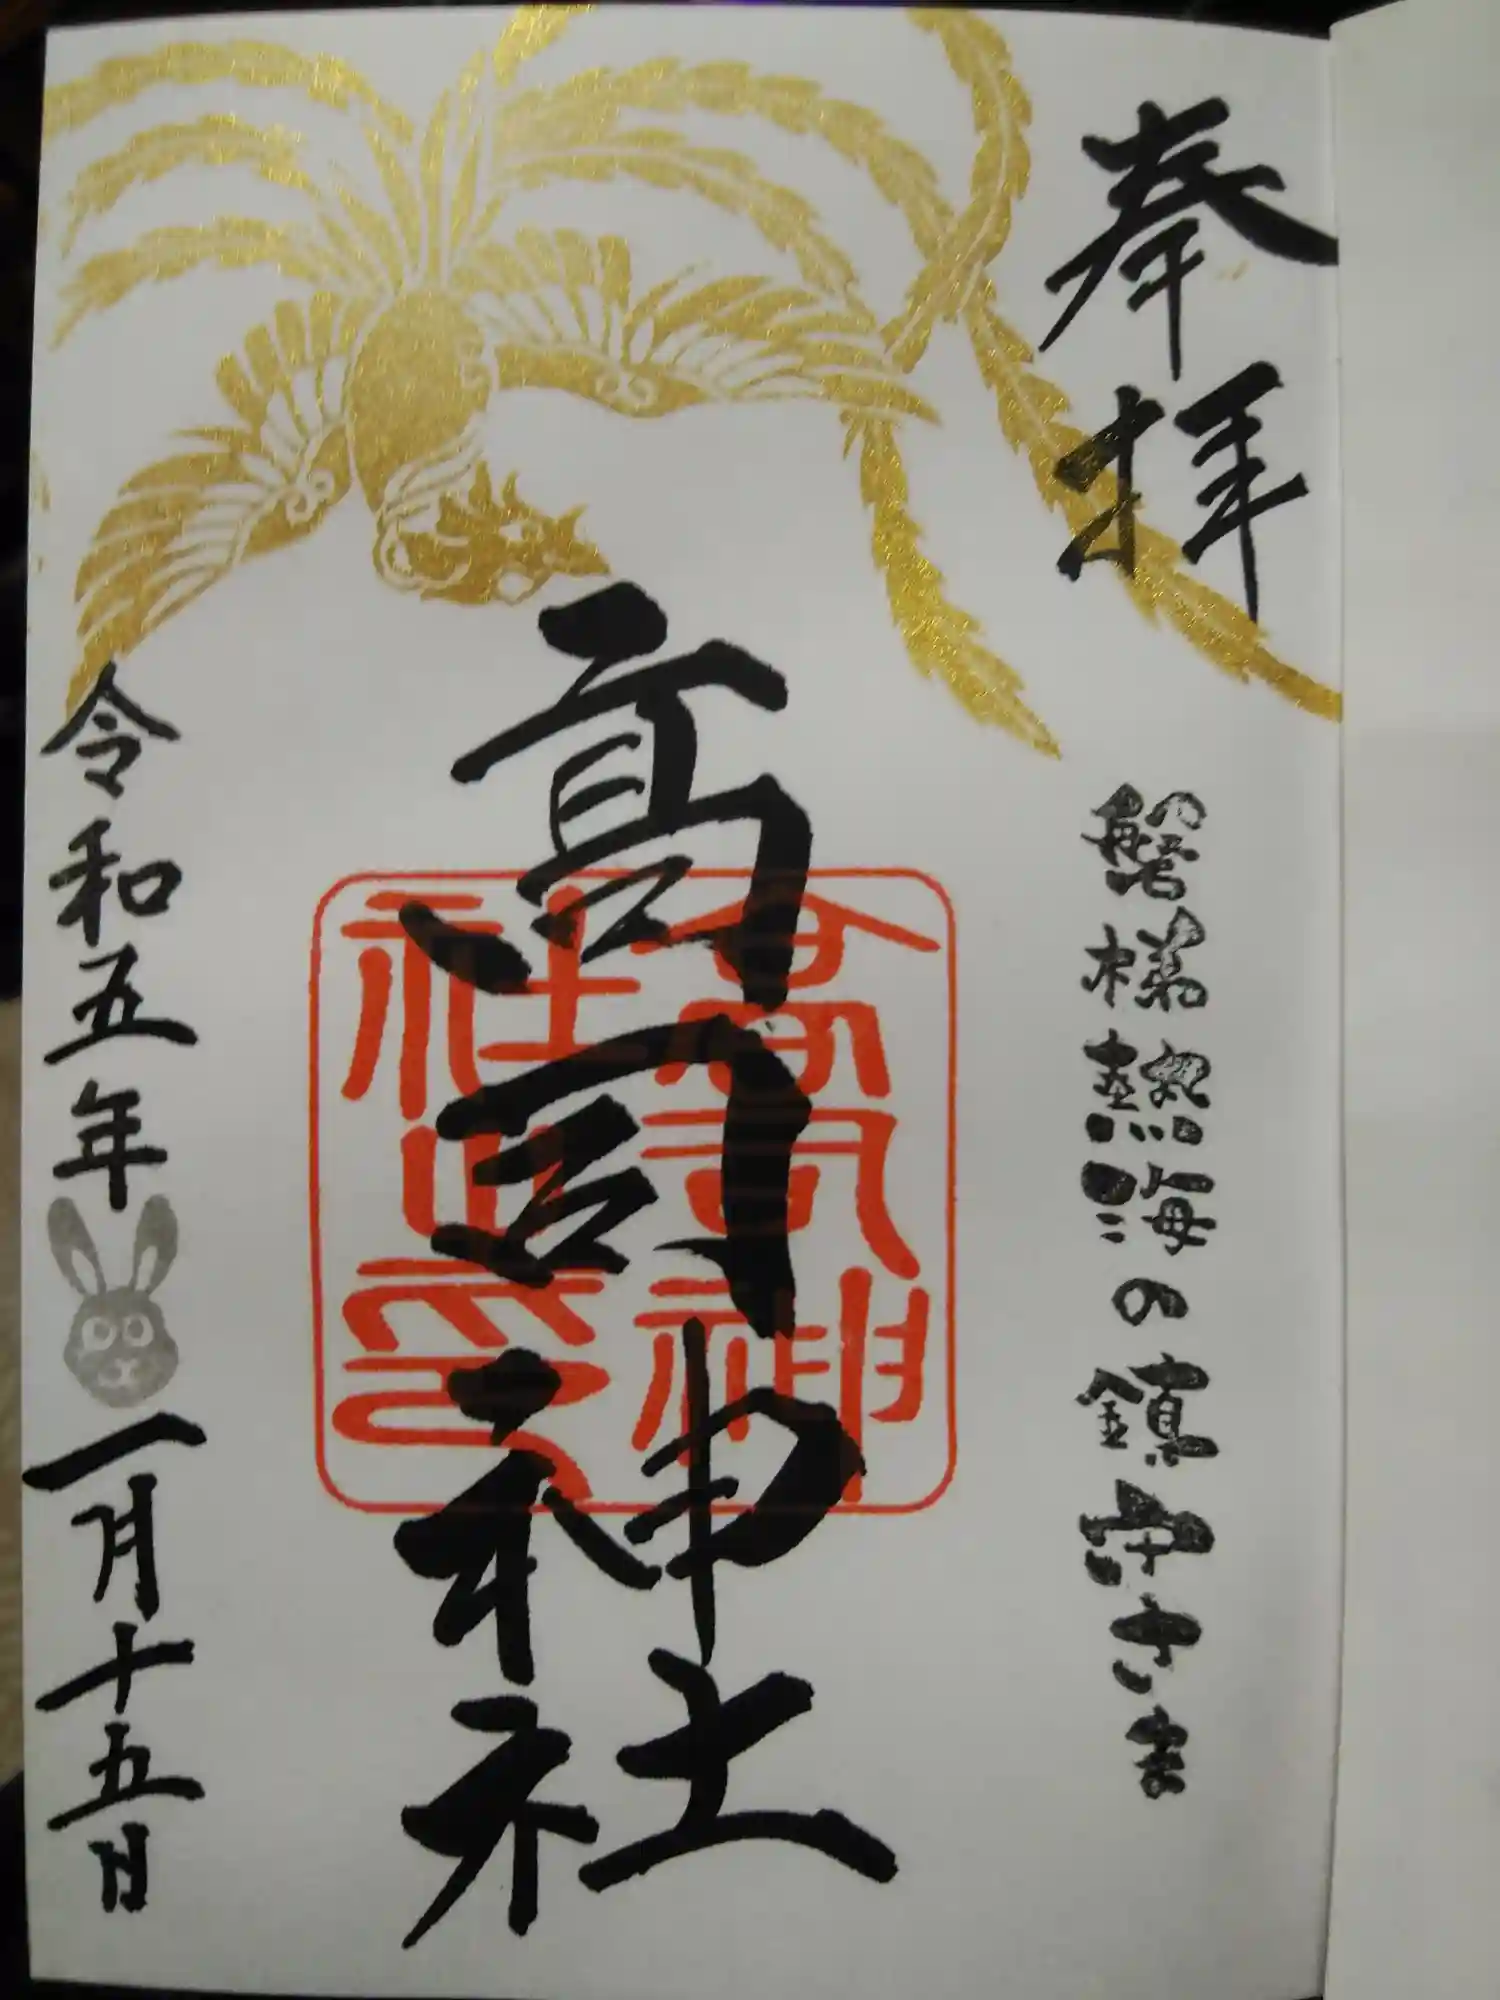 奉拝
磐梯熱海の鎮守さま
高司神社
高司神社之印
令和五年一月十五日